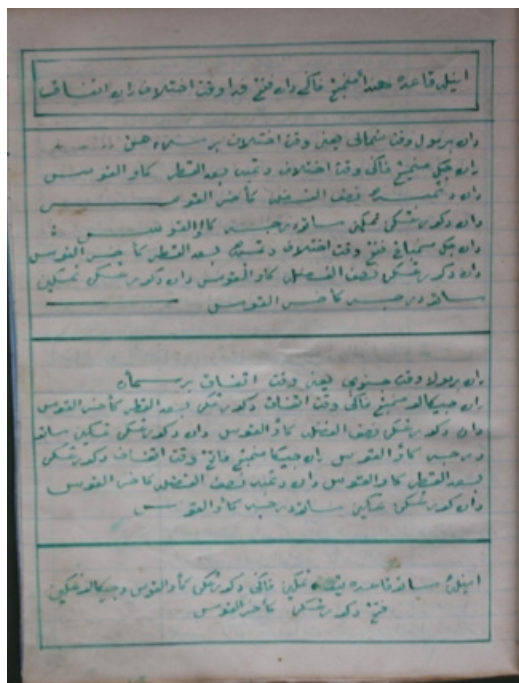 اينله قاعده هندا منجغ ڤاݢي دان فتڠ ڤدا وقت اختلاف دان اتفاق
دان برمول وقت شمالي يعني وقت اختلاف برسماء
دان جك منجغ ڤاݢي وقت اختلاف دتمبه بعد القطر كأول القوس
دان دتمبه نصف الفضل كأخر القوس
دان دكورڠكن تمكين ساتو درجه كأول القوس
دان جك منجغ فتڠ وقت اختلاف دتمبه بعد القطر كأخر القوس
دان دكورڠكن نصف الفضل كأول القوس دان دكورڠكن تمكين
ساتو درجه كأخر القوس
دان برمول وقت جنوبي يعني وقت اتفاق برسماء
دان جيكالو منجغ ڤاݢي وقت اتفاق دكورڠكن بعد القطر كأخر القوس
دان دكورڠكن نصف الفضل كأول القوس دان دكورڠكن تمكين ساتو
درجه كأول القوس دان جيك منجغ فتڠ وقت اتفاق دكورڠكن
بعد القطر كأول القوس دان دتمبه نصف الفضل كأخر القوس
دان دكورڠكن تمكين ساتو درجه كأول القوس
اينله ساتو قاعده تمكين ڤاݢي دكورڠكن كأول القوس دجيكالو تمكين
فتڠ دكورڠكن كأخر القوس